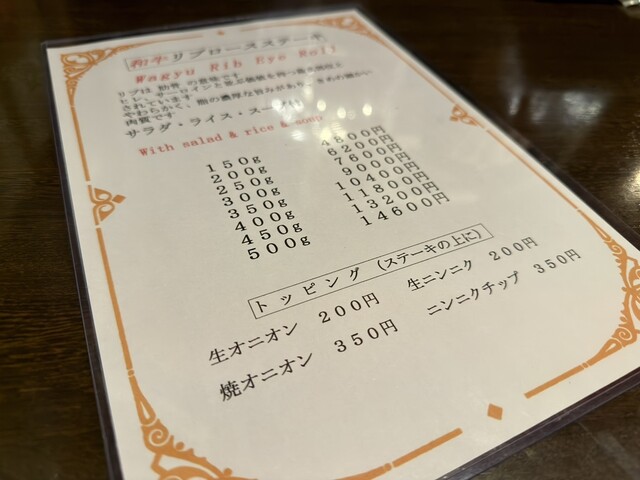 和牛リブロースステーキ
Wagyu Rib Eye Roll
リブは 肋骨 の意味です
ヒレ、サーロインと並ぶ
されています
やわらかく、脂の濃厚な旨みがあり、きめの細かい
肉質です
サラダ・ライス・スープ付
With salad & rice & soup
150g 4800円
200g 6200円
250g 7600円
300g 9000円
350g 10400円
400g 11800円
450g 13200円
500g 14600円
トッピング (ステーキの上に)
生オニオン 200円 生ニンニク 200円
焼オニオン 350円 ニンニクチップ 350円